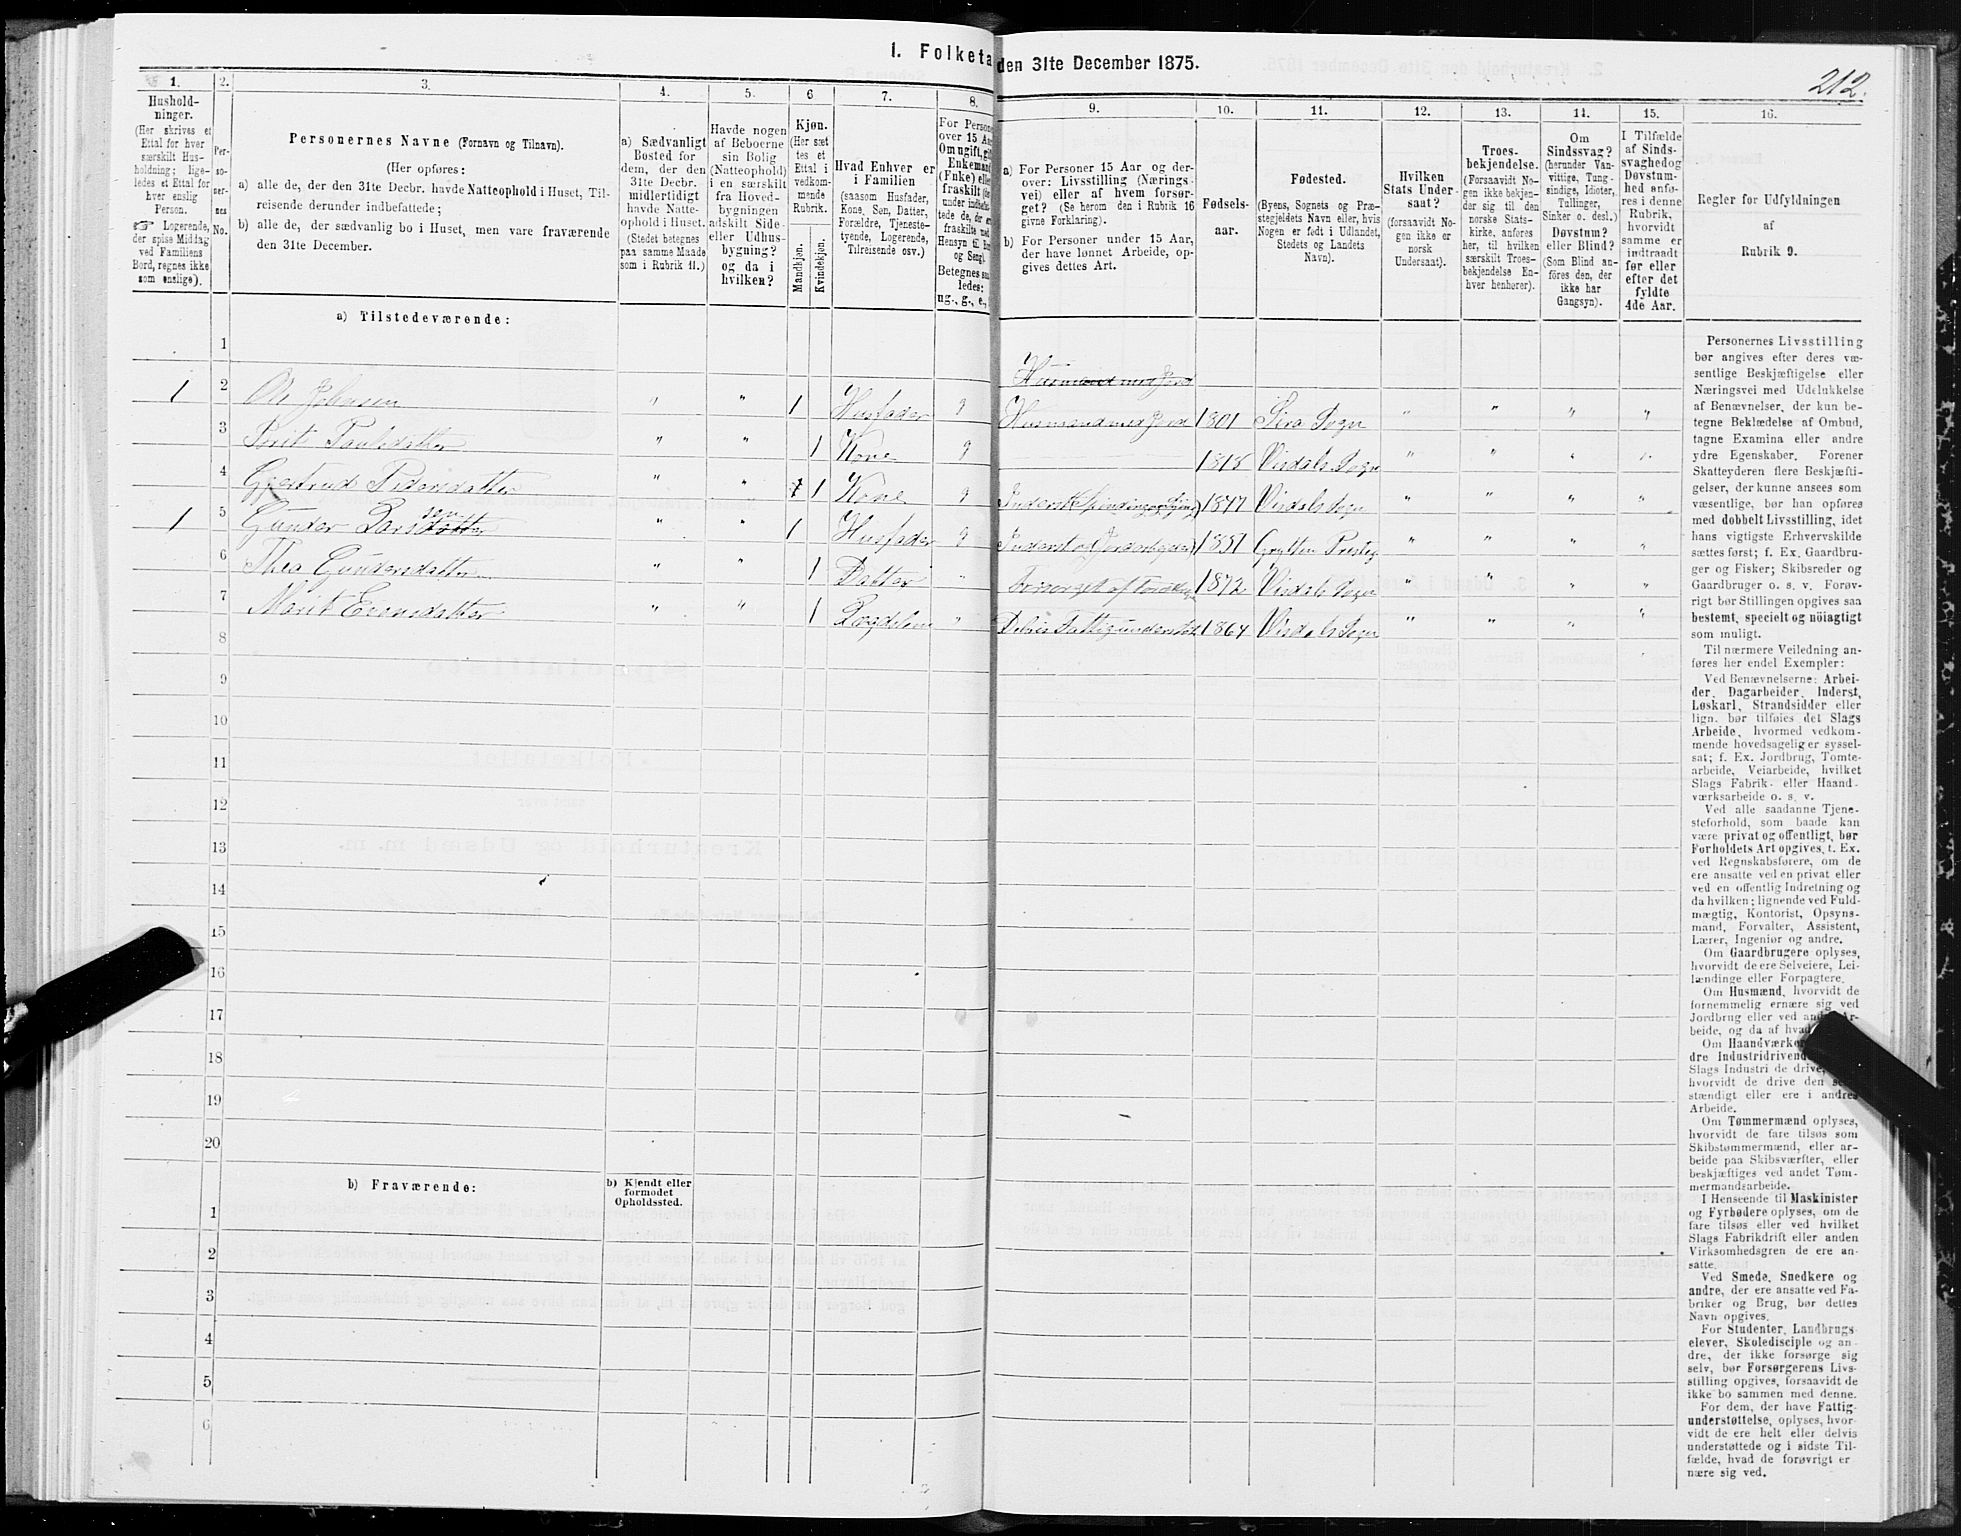 1. Folketa den 31te December 1875.
212.
1.
Hushold-
ninger.
(Her skrives et
Ettal for hver
særskilt Hus-
holdning; lige-
ledes et Ettal for
hver enslig
Person.
☞ Logerende,
der spise Middag
ved Familiens
Bord, regnes ikke
som enslige).
2.
Per-
so-
ner-
nes
No.
3.
Personernes Navne (Fornavn og Tilnavn).
(Her opføres:
a) alle de, der den 31te Decbr. havde Natteophold i Huset, Til-
reisende derunder indbefattede;
b) alle de, der sædvanlig bo i Huset, men vare fraværende
den 31te December.
4.
a) Sædvanligt
Bosted for
dem, der den
31te Decbr.
midlertidigt
havde Natte-
ophold i Huset.
(Stedet betegnes
paa samme Maade
som i Rubrik 11.)
5.
Havde nogen
af Beboerne
sin Bolig
(Natteophold)
i en særskilt
fra Hoved-
bygningen
adskilt Side-
eller Udhus-
bygning?
og da i
hvilken?
6
Kjøn.
(Her sæt
tes et
Ettal i
vedkom-
mende
Rubrik.
Mandkjøn.
Kvindekjøn.
7.
Hvad Enhver er
i Familien
(saasom Husfader,
Kone, Søn, Datter,
Forældre, Tjeneste-
tyende, Logerende,
Tilreisende osv.)
8.
For Persone
over 15 Aa
Om ugift, gi
Enkemand
(Enke) elle
fraskilt
Betegnes saa
ledes:
ug., g., e.,
9.
a) For Personer 15 Aar og der-
over: Livsstilling (Nærings-
vei) eller af hvem forsør-
get? (Se herom den i Rubrik 16
givne Forklaring).
b) For Personer under 15 Aar,
der have lønnet Arbeide, op-
gives dettes Art.
10.
Fødsels-
aar.
11.
Fødested.
(Byens, Sognets og Præ-
stegjeldets Navn eller, hvis
Nogen er født i Udlandet,
Stedets og Landets
Navn).
12.
Hvilken
Stats Under-
saat?
(forsaavidt No-
gen ikke er
norsk
Undersaat).
13.
Troes-
bekjendelse.
(Forsaavidt No-
gen ikke bekjen-
der sig til den
norske Stats-
kirke, anføres
her, til hvilken
særskilt Troes-
bekjendelse En-
hver henhører).
14.
Om
Sindssvag?
(herunder Van-
vittige, Tung-
sindige, Idioter,
Tullinger,
Sinker o. desl.)
Døvstum?
eller Blind?
(Som Blind an-
føres den, der
ikke har
Gangsyn).
15.
I Tilfælde
af Sinds-
svaghed og
Døvstum-
hed anfø-
res i denne
Rubrik,
hvorvidt
samme er
indtraadt
før eller
efter det
fyldte
4de Aar.
16.
Regler for Udfyldningen
af
Rubrik 9.
a) Tilstedeværende:
1
Husmand med Jord
1 2 Ole Johnsen " " 1 Husfader g Husmand med Jord 1801 Sira Sogn " " " "
3 Marit Paulsdatter " " 1 Kone g 1818 Visdals Sogn " " " "
4 Gjertrud Pedersdatter " " 1 1 Kone g Inderst 1847 Visdals Sogn " " " "
1 5 Gunder Larsdatter sen " " 1 Husfader g Inderst og Jordarbeider 1851 Gryttens Prestg " " " "
6 Thea Gundersdatter " " 1 Datter " Forsørget af Forældrene 1872 Visdals Sogn " " " "
7 Marit Evensdatter " " 1 Lægdslem " Delvis Fattigunderstøt 1864 Visdals Sogn " " " "
8
9
10
11
12
13
14
15
16
17
18
19
20
b) Fraværende:
b) Kjendt eller
formodet
Opholdssted.
1
2
3
4
5
6
Personernes Livsstilling
bør angives efter deres væ-
sentlige Beskjæftigelse eller
Næringsvei med Udelukkelse
af Benævnelser, der kun be-
tegne Beklædelse af Ombud,
tagne Examina eller andre
ydre Egenskaber. Forener
Skatteyderen flere Beskjæfti-
gelser, der kunne ansees som
væsentlige, bør han opføres
med dobbelt Livsstilling, idet
hans vigtigste Erhvervskilde
sættes først; f. Ex. Gaardbru-
ger og Fisker; Skibsreder og
Gaardbruger o. s. v. Forøv-
rigt bør Stillingen opgives saa
bestemt, specielt og nöiagtigt
som muligt.
Til nærmere Veiledning an-
føres her endel Exempler:
Ved Benævnelserne: Arbei-
der, Dagarbeider, Inderst,
Løskarl, Strandsidder eller
lign. bør tilføies det Slags
Arbeide, hvormed vedkom-
mende hovedsagelig er syssel-
sat; f. Ex. Jordbrug, Tomte-
arbeide, Veiarbeide, hvilket
Slags Fabrik- eller Haand-
værksarbeide o. s. v.
Ved alle saadanne Tjene-
steforhold, som baade kan
være privat og offentligt, bør
Forholdets Art opgives, t. Ex.
ved Regnskabsførere, om de
ere ansatte ved en privat eller
ved en offentlig Indretning og
da hvilken; lignende ved Fuld-
mægtig, Kontorist, Opsyns-
mand, Forvalter, Assistent,
Lærer, Ingeniør og andre.
Om Gaardbrugere oplyses,
hvorvidt de ere Selveiere, Lei-
lændinge eller Forpagtere.
Om Husmænd, hvorvidt de
fornemmelig ernære sig ved
Jordbrug eller ved and Ar-
beide, og da af hvad
Om Haandværker
dre Industridrivend
Slags Industri de drive,
hvorvidt de drive den sel
stændigt eller ere i andres
Arbeide.
Om Tømmermænd oplyses,
hvorvidt de fare tilsøs som
Skibstømmermænd, eller ar-
beide paa Skibsværfter, eller
beskjæftiges ved andet Tøm-
mermandsarbeide.
I Henseende til Maskinister
og Fyrbødere oplyses, om de
fare tilsøs eller ved hvilket
Slags Fabrikdrift eller anden
Virksomhedsgren de ere an-
satte.
Ved Smede, Snedkere og
andre, der ere ansatte ved Fa-
briker og Brug, bør dettes
Navn opgives.
For Studenter, Landbrugs-
elever, Skoledisciple og an-
dre, der ikke forsørge sig
selv, bør Forsørgerens Livs-
stilling opgives, forsaavidt de
ikke bo sammen med denne.
For dem, der have Fattig-
understøttelse, oplyses, hvor-
vidt de ere helt eller delvis
understøttede og i sidste Til-
fælde, hvad de forøvrigt er
nære sig ved.